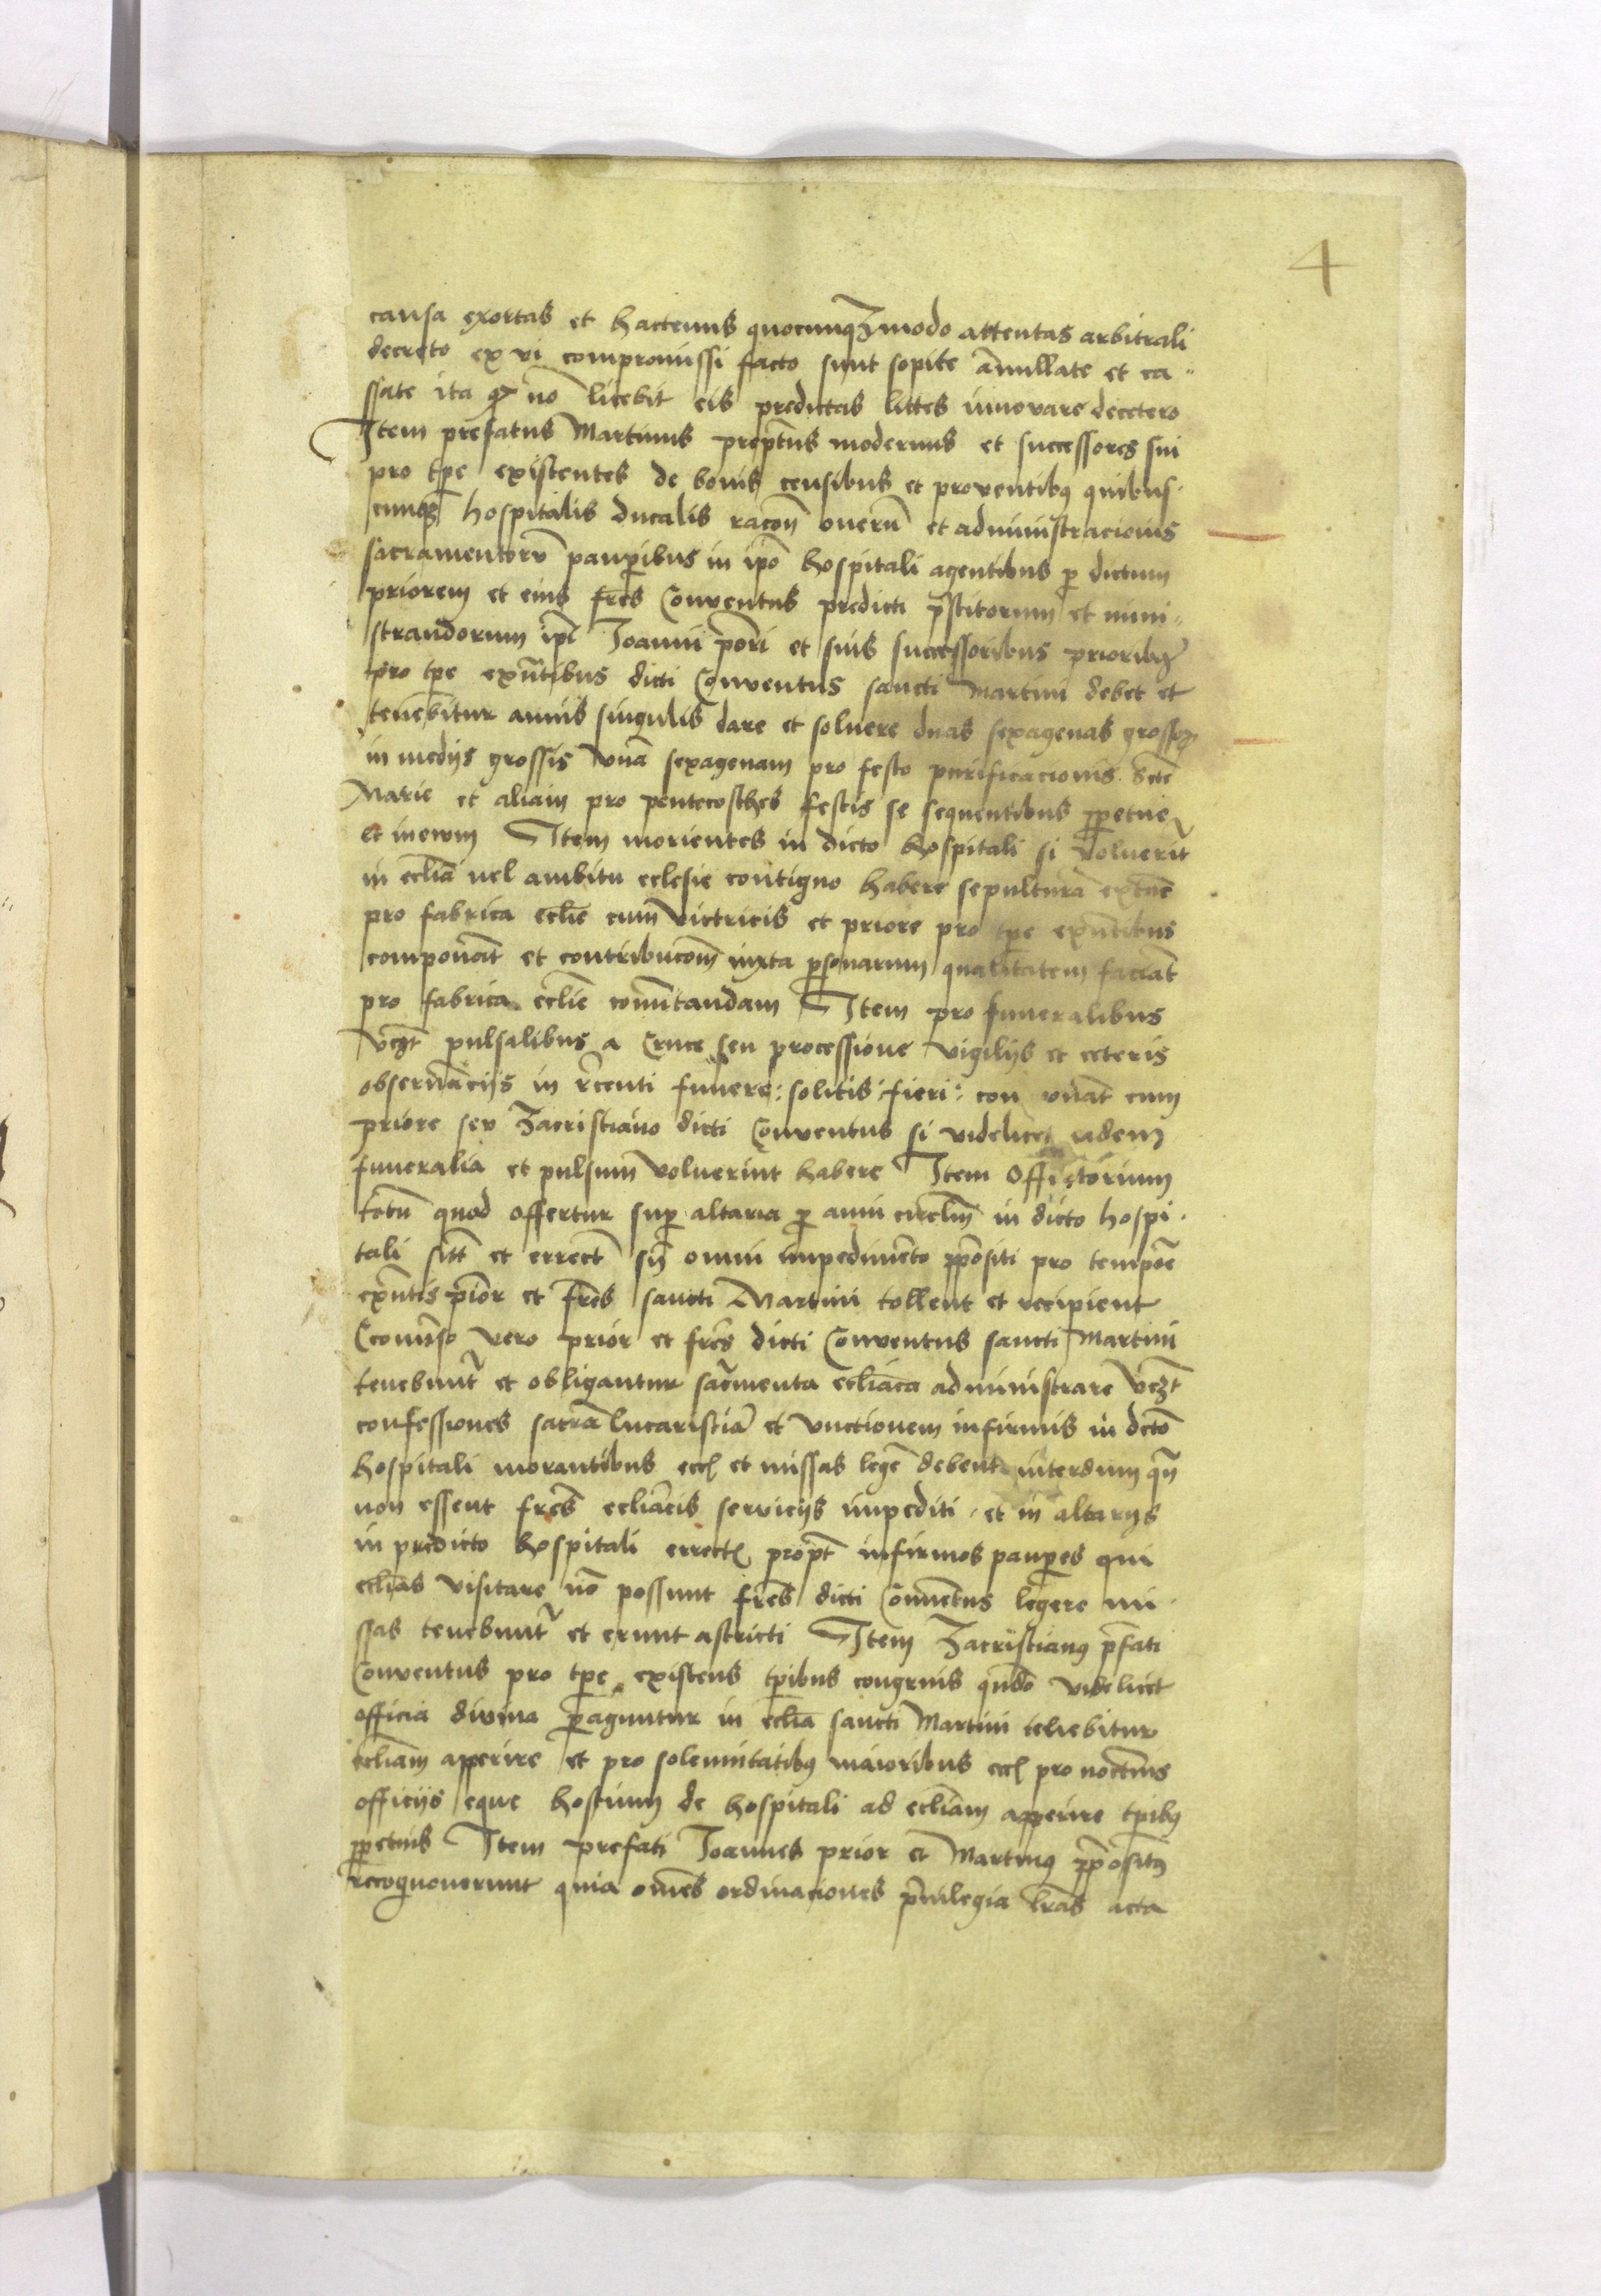 4
causa exortas et hactenus quocunqꝫmodo attentas arbitrali
decreto ex vi compromissi facto sunt sopite ānullate et ca-
ssate ita ꝙ nō licebit eis predictas littes innovare decetero
Item prefatus Martinus prep̄tus modernus et successores sui
pro tp̄e existentes de bonis censibus et proventibꝯ quibus-
cunqꝫ hospitalis ducalis racōn onerū et administracionis
sacramentorū paup̄ibus in ip̄o hospitali agentibus ꝑ dictum
priorem et eius fr̄es Conventus predicti p̄stitorum et mini-
strandorum ip̄i Joanni p̄ori et suis successoribus prioribꝯ
pro tp̄e exn̄tibus dicti Conventus sancti Martini debet et
tenebitur annis singulis dare et soluere duas sexagenas grossoꝝ
in medijs grossis vnā sexagenam pro festo purificacionis Sctē
Marie et aliam pro pentecosthes festis se sequentibus ꝑpetue
et inewm Item morientes in dicto hospitali si voluerīt
in ecl̄ia uel ambitu eclesie contiguo habere sepulturā extūc
pro fabrica ecl̄ie cum victricis et priore pro tp̄e exn̄tibus
componāt et contribucōm iuxta ꝑsonarum qualitatem faciāt
pro fabrica ecl̄ie comītandam Item pro funeralibus
vcꝫt pulsalibus a Cruce seu processione vigilijs et ceteris
obseruācijs in r̄centi funere: solitis: fieri: con vnāt cum
priore seu Zacristiano dicti Conventus si videlicet eadem
funeralia et pulsum voluerint habere Item Offertorium
totū quod offertur suꝑ altaria ꝑ anni circl̄m in dicto hospi-
tali sitt̄ et errect̄ sn̄ omni impedimēto ꝓpositi pro tempore
exn̄tis p̄ior et fr̄es sancti Martini tollent et recipient
Econverso vero prior et fr̄es dicti Conventus sancti Martini
tenebunt᷑ et obligantur sac̄menta eccl̄iāca administrare vcꝫt
confessiones sacrā Eucaristiā et vnctionem infirmis in dcto
hospitali morantibus etc̄ et missas legē debent interdum qn̄
non essent fr̄es ecl̄iācis seruicijs impediti et in altarijs
in predicto hospitali errect̄ propt̄ infirmos paup̄es qui
ecl̄ias visitare nō possunt fr̄es dicti Conuētus legere mi-
ssas tenebunt᷑ et erunt astricti Item Zacristianꝯ p̄fati
Conventus pro tp̄e existens tp̄ibus congruis qn̄do videlicet
officia divina ꝑaguntur in ecl̄ia sancti Martini tenebitur
ecl̄iam apperire et pro solemnitatibꝯ maioribus etc̄ pro noctnis
officijs eque hostium de hospitali ad ecl̄iam apperire tp̄ibꝯ
ꝑpetuis Item prefati Joannes prior et Martinꝯ ꝓpositꝯ
recognouerunt quia om̄es ordinaciones p̄uilegia lr̄as acta